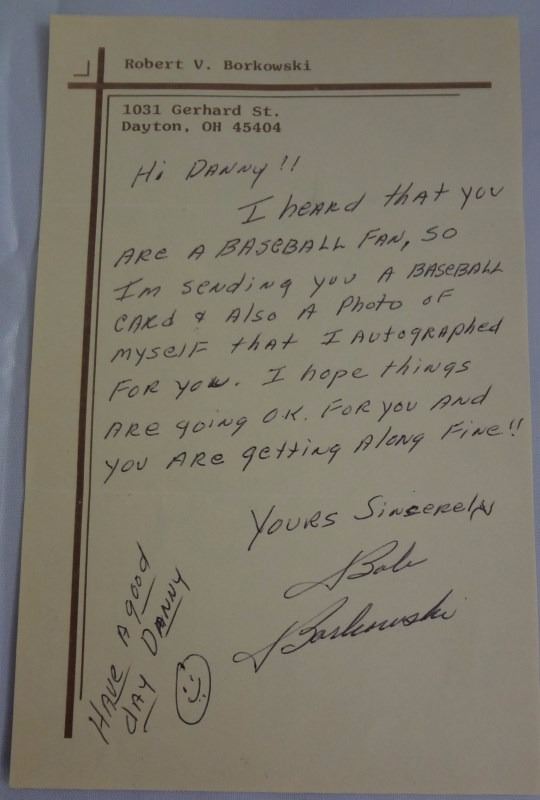 Robert V. Borkowski
1031 Gerhard St.
Dayton, OH 45404
Hi Danny!!
I heard that you
are a baseball fan, so
Im sending you a baseball
card & also a photo of
myself that I autographed
for you. I hope things
are going ok. for you and
you are getting along fine!!
Yours Sincerely
Bob
Borkowski
Have a good
day Danny